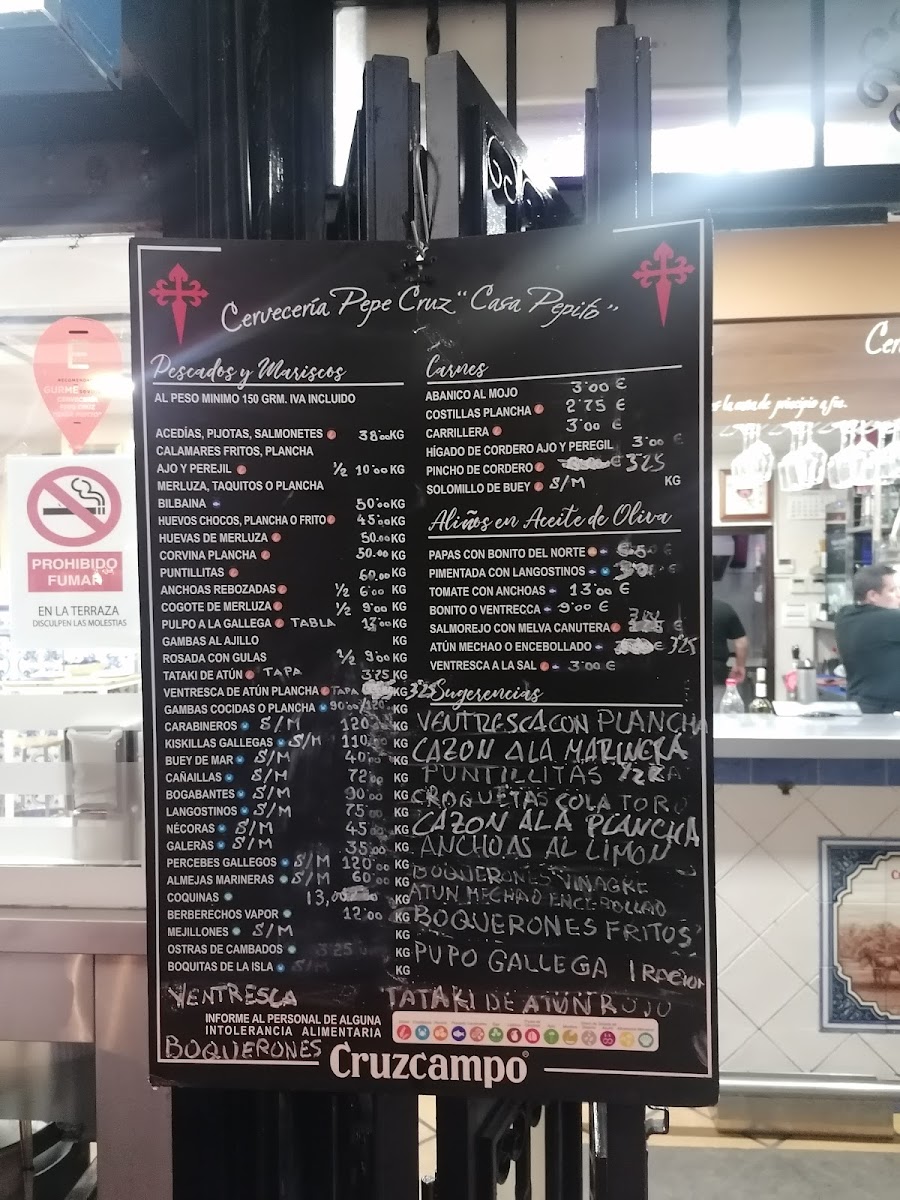 Cervecería Pepe Cruz "Casa Pepito"
Pescados y Mariscos
AL PESO MINIMO 150 GRM. IVA INCLUIDO
ACEDÍAS, PIJOTAS, SALMONETES 38'00 KG
CALAMARES FRITOS, PLANCHA
AJO Y PEREJIL 1/2 10'00 KG
MERLUZA, TAQUITOS O PLANCHA
BILBAINA 50'00 KG
HUEVOS CHOCOS, PLANCHA O FRITO 45'00 KG
HUEVAS DE MERLUZA 50.00 KG
CORVINA PLANCHA 50.00 KG
PUNTILLITAS 60,00 KG
ANCHOAS REBOZADAS 1/2 6'00 KG
COGOTE DE MERLUZA 1/2 9'00 KG
PULPO A LA GALLEGA TABLA 13'00 KG
GAMBAS AL AJILLO KG
ROSADA CON GULAS 1/2 9'00 KG
TATAKI DE ATÚN TAPA 3'75 KG
VENTRESCA DE ATÚN PLANCHA TAPA KG 3'25
GAMBAS COCIDAS O PLANCHA 90'00/120'00 KG
CARABINEROS S/M 120'00 KG
KISKILLAS GALLEGAS S/M 110,00 KG
BUEY DE MAR S/M 40,00 KG
CAÑAILLAS S/M 72'00 KG
BOGABANTES S/M 90'00 KG
LANGOSTINOS S/M 75'00 KG
NÉCORAS S/M 45'00 KG
GALERAS S/M 35'00 KG
PERCEBES GALLEGOS S/M 120'00 KG
ALMEJAS MARINERAS S/M 60'00 KG
COQUINAS 13,00 KG
BERBERECHOS VAPOR 12'00 KG
MEJILLONES S/M KG
OSTRAS DE CAMBADOS 3'25 KG
BOQUITAS DE LA ISLA S/M KG
VENTRESCA
BOQUERONES
Carnes
ABANICO AL MOJO 3'00 €
COSTILLAS PLANCHA 2'75 €
CARRILLERA 3'00 €
HÍGADO DE CORDERO AJO Y PEREGIL 3'00 €
PINCHO DE CORDERO € 3'25
SOLOMILLO DE BUEY S/M KG
Aliños en Aceite de Oliva
PAPAS CON BONITO DEL NORTE €
PIMENTADA CON LANGOSTINOS €
TOMATE CON ANCHOAS 13'00 €
BONITO O VENTRECCA 9'00 €
SALMOREJO CON MELVA CANUTERA €
ATÚN MECHAO O ENCEBOLLADO € 3'25
VENTRESCA A LA SAL 3'00 €
Sugerencias
VENTRESCA CON PLANCHA
CAZON ALA MARINERA
PUNTILLITAS 1/2 RA
CROQUETAS COLA TORO
CAZON ALA PLANCHA
ANCHOAS AL LIMON
BOQUERONES VINAGRE
ATUN MECHAO ENCEBOLLAO
BOQUERONES FRITOS
PUPO GALLEGA 1 RACION
TATAKI DE ATÚN ROJO
INFORME AL PERSONAL DE ALGUNA
INTOLERANCIA ALIMENTARIA
Cruzcampo
PROHIBIDO
FUMAR
EN LA TERRAZA
DISCULPEN LAS MOLESTIAS
Cer
de principio a fin.